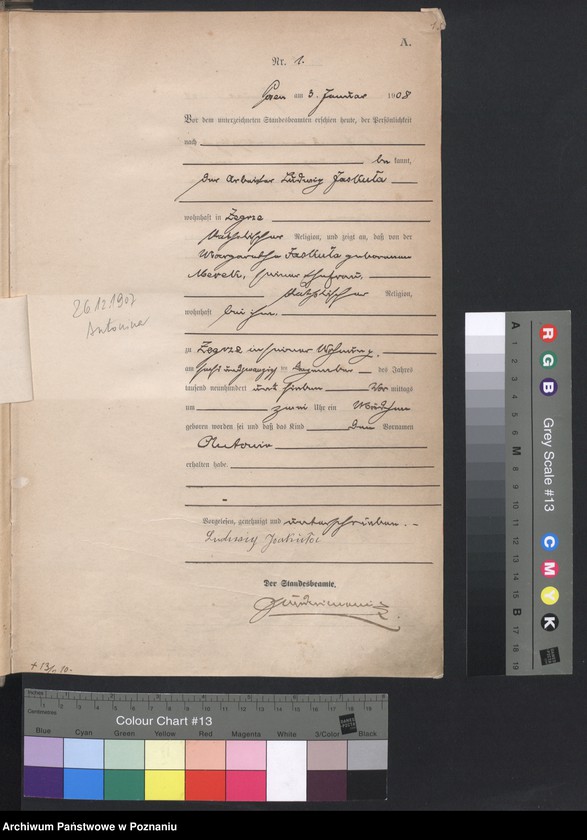 A.
Nr. 1.
Posen am 3. Januar 1908
Vor dem unterzeichneten Standesbeamten erschien heute, der Persönlichkeit
nach
be kannt,
der Arbeiter Ludwig Jaskuła
wohnhaft in Zegrze
katholischer Religion, und zeigt an, daß von der
Margarethe Jaskuła geborenen
seiner Ehefrau,
katholischer Religion,
wohnhaft bei ihm,
zu Zegrze in seiner Wohnung,
am sechsundzwanzigsten Dezember des Jahres
tausend neunhundert und sieben Vor mittags
um zwei Uhr ein Mädchen
geboren worden sei und daß das Kind den Vornamen
Antonie
erhalten habe.
Vorgelesen, genehmigt und unterschrieben.
Ludwig Jaskuła
Der Standesbeamte.
26.12.1907
Antonina
Grey Scale #13
A 1 2 3 4 5 6 M 8 9 10 11 12 13 14 15 B 17 18 19
R G B C M Y K
Inches
Centimetres
Colour Chart #13
Blue Cyan Green Yellow Red Magenta White 3/Color Black
Archiwum Państwowe w Poznaniu